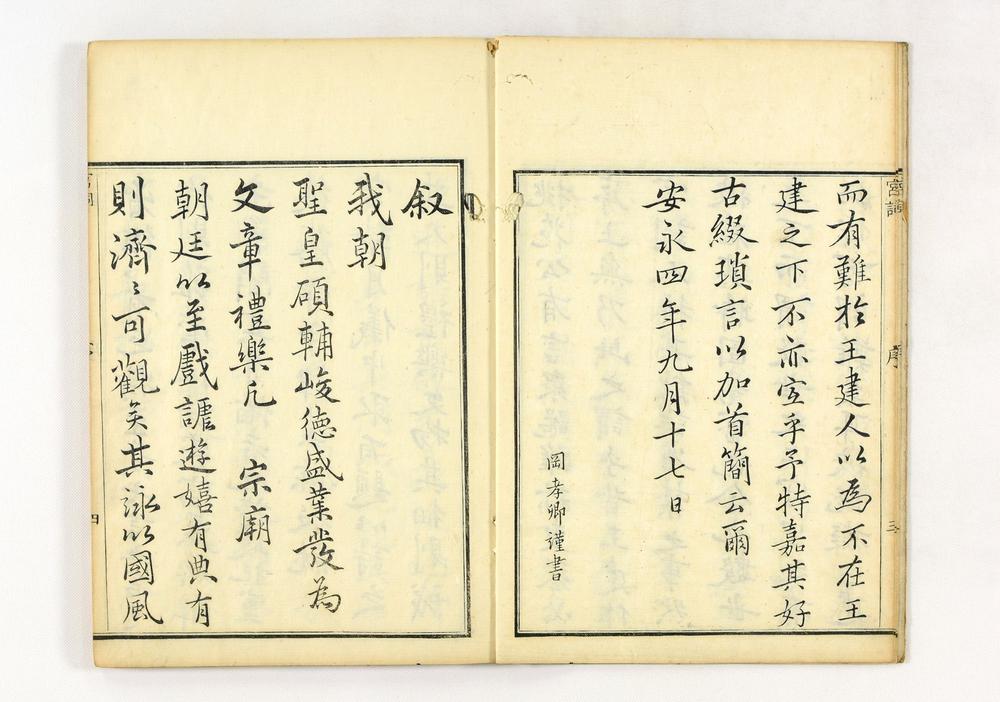 而有難於王建人以為不在王
建之下不亦宜乎予特嘉其好
古綴瑣言以加首簡云爾
安永四年九月十七日
岡孝卿謹書
宮詞
序
三
叙
我朝
聖皇碩輔峻德盛業發為
文章禮樂凡 宗廟
朝廷以至戲謔遊嬉有典有
則濟〻可觀矣其詠以國風
四